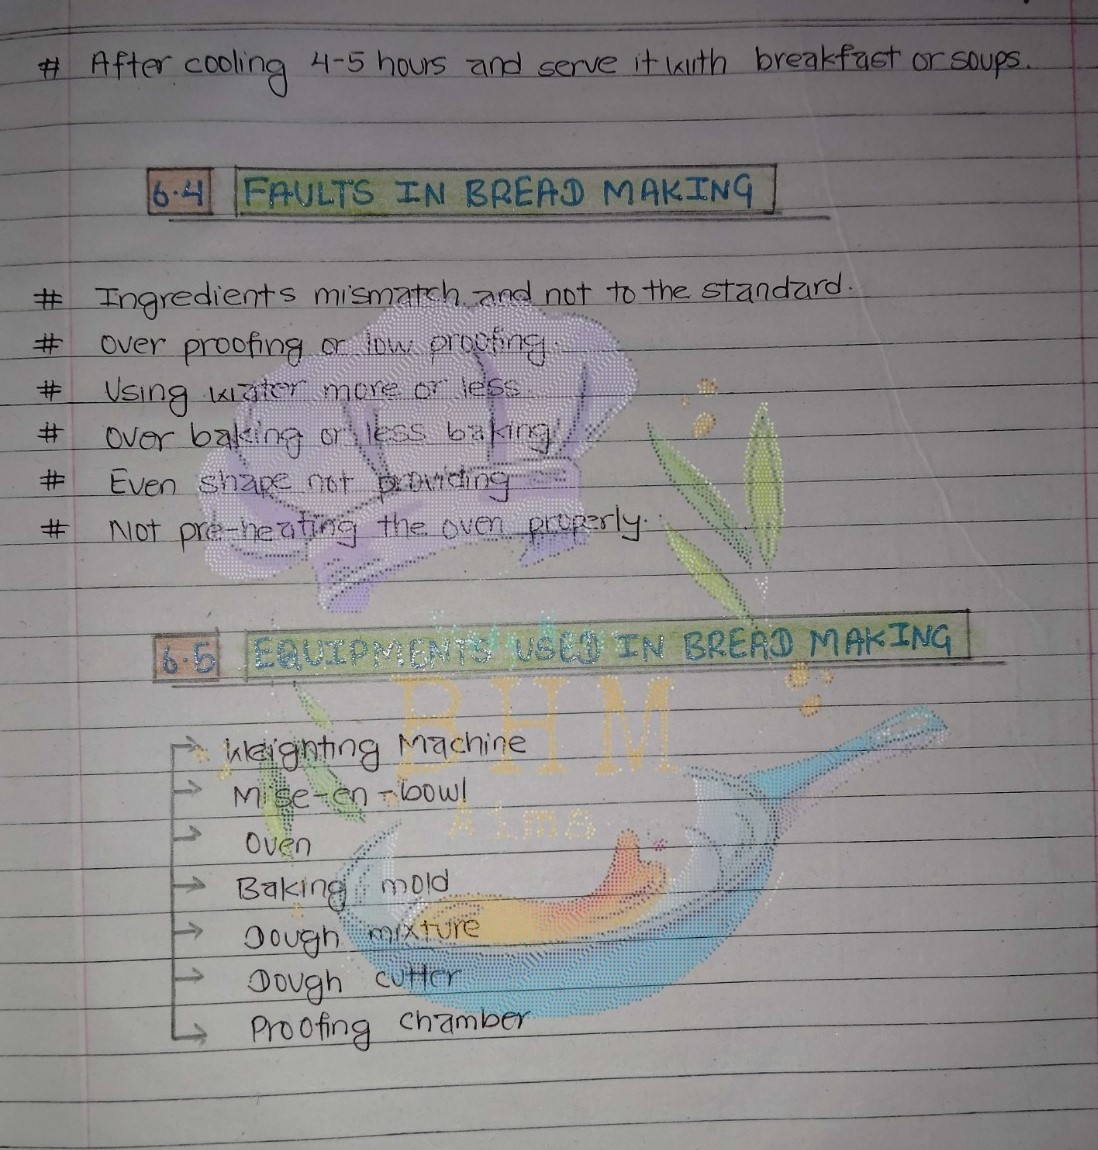 # After cooling 4-5 hours and serve it with breakfast or soups.
6.4 FAULTS IN BREAD MAKING
# Ingredients mismatch and not to the standard.
# Over proofing or low proofing.
# Using water more or less.
# Over baking or less baking
# Even shape not providing
# Not pre-heating the oven properly.
6.5 EQUIPMENTS USED IN BREAD MAKING
BHM
→ Weighting Machine
→ Mise-en-bowl
Aims
→ Oven
→ Baking mold
→ Dough mixture
→ Dough cutter
→ Proofing chamber